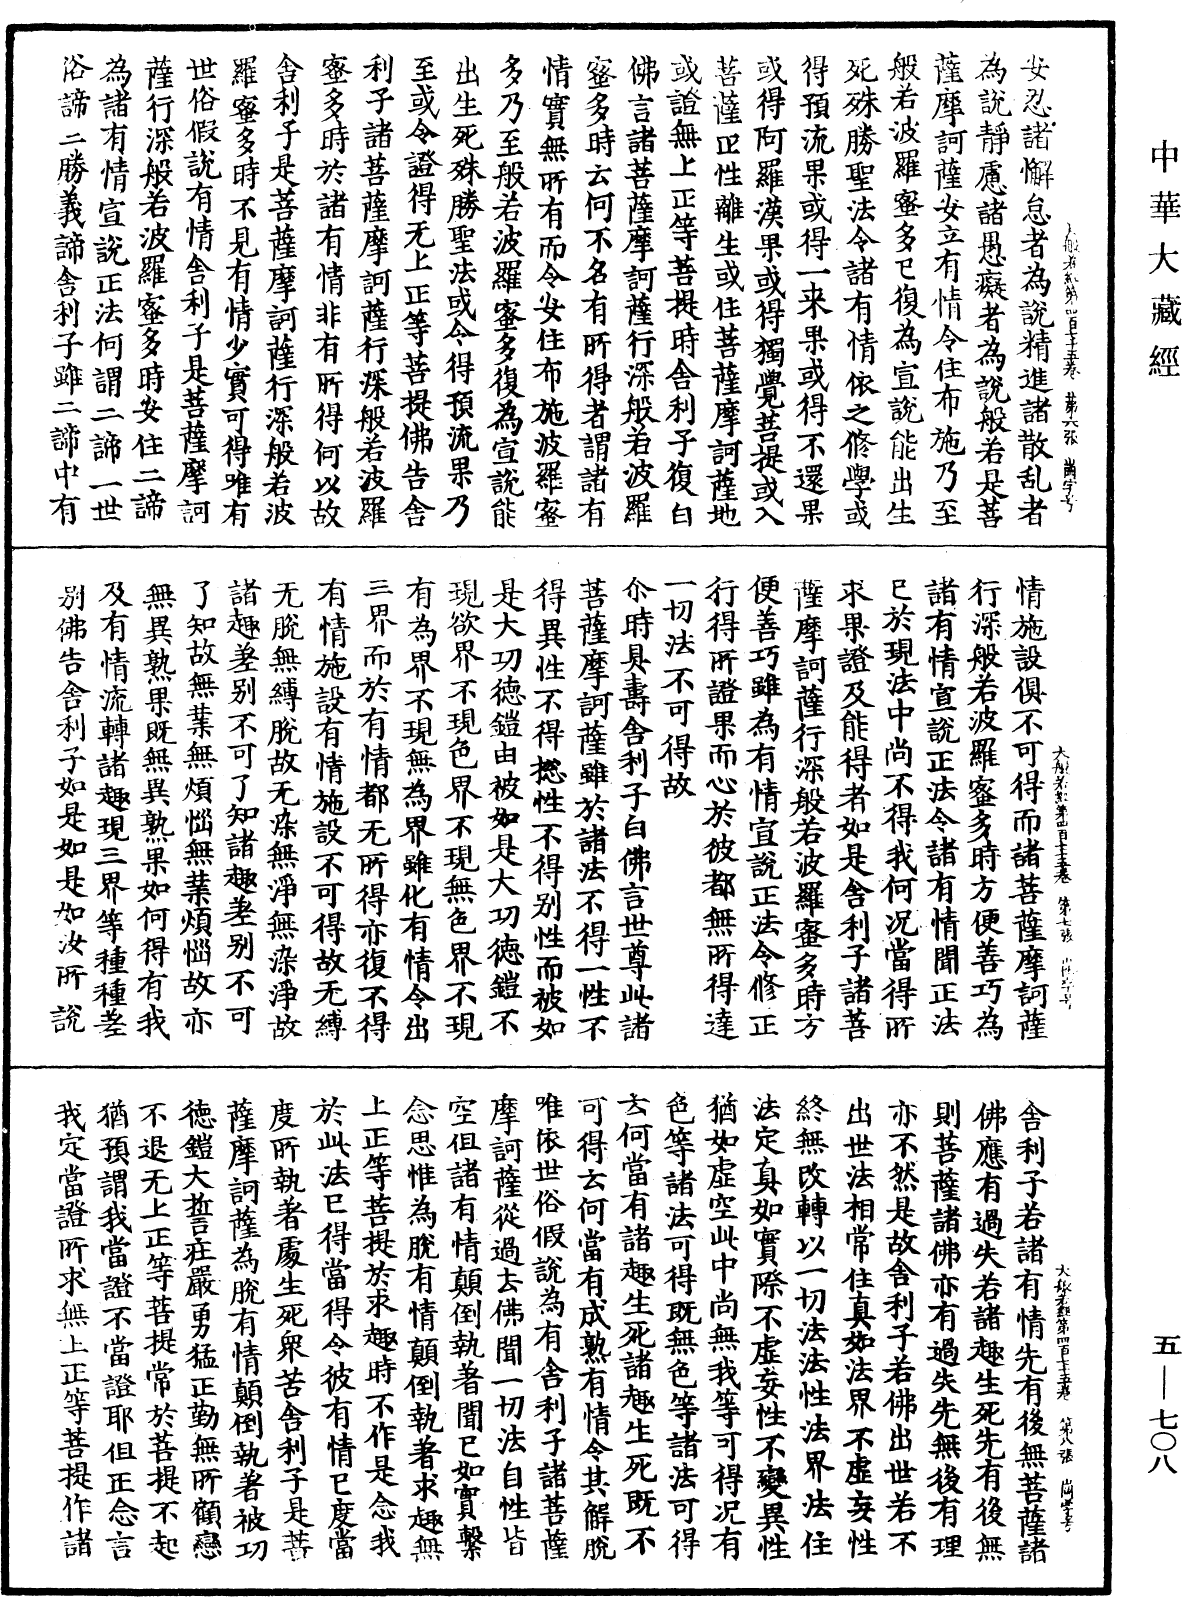 中華大藏經
安忍諸懈怠者為說精進諸散乱者
為說靜慮諸愚癡者為說般若是菩
薩摩訶薩安立有情令住布施乃至
般若波羅蜜多已復為宣說能出生
死殊勝聖法令諸有情依之修學或
得預流果或得一来果或得不還果
或得阿羅漢果或得獨覺菩提或入
菩薩正性離生或住菩薩摩訶薩地
或證無上正等菩提時舍利子復白
佛言諸菩薩摩訶薩行深般若波羅
蜜多時云何不名有所得者謂諸有
情實無所有而令安住布施波羅蜜
多乃至般若波羅蜜多復為宣說能
出生死殊勝聖法或令得預流果乃
至或令證得无上正等菩提佛告舍
利子諸菩薩摩訶薩行深般若波羅
蜜多時於諸有情非有所得何以故
舍利子是菩薩摩訶薩行深般若波
羅蜜多時不見有情少實可得唯有
世俗假說有情舍利子是菩薩摩訶
薩行深般若波羅蜜多時安住二諦
為諸有情宣說正法何謂二諦一世
俗諦二勝義諦舍利子雖二諦中有
大般若經第四百七十五卷 第六張 崗字号
情施設俱不可得而諸菩薩摩訶薩
行深般若波羅蜜多時方便善巧為
諸有情宣說正法令諸有情聞正法
已於現法中尚不得我何况當得所
求果證及能得者如是舍利子諸菩
薩摩訶薩行深般若波羅蜜多時方
便善巧雖為有情宣說正法令修正
行得所證果而心於彼都無所得達
一切法不可得故
尒時具壽舍利子白佛言世尊此諸
菩薩摩訶薩雖於諸法不得一性不
得異性不得揔性不得别性而被如
是大功德鎧由被如是大功德鎧不
現欲界不現色界不現無色界不現
有為界不現無為界雖化有情令出
三界而於有情都无所得亦復不得
有情施設有情施設不可得故无縛
无脫無縛脫故无染無淨無染淨故
諸趣差别不可了知諸趣差别不可
了知故無業無煩惱無業煩惱故亦
無異熟果既無異熟果如何得有我
及有情流轉諸趣現三界等種種差
别佛告舍利子如是如是如汝所說
大般若經第四百七十五卷 第七張 崗字号
舍利子若諸有情先有後無菩薩諸
佛應有過失若諸趣生死先有後無
則菩薩諸佛亦有過失先無後有理
亦不然是故舍利子若佛出世若不
出世法相常住真如法界不虛妄性
終無改轉以一切法法性法界法住
法定真如實際不虛妄性不變異性
猶如虛空此中尚無我等可得况有
色等諸法可得既無色等諸法可得
云何當有諸趣生死諸趣生死既不
可得云何當有成熟有情令其解脫
唯依世俗假說為有舍利子諸菩薩
摩訶薩從過去佛聞一切法自性皆
空但諸有情顛倒執著聞已如實繫
念思惟為脫有情顛倒執著求趣無
上正等菩提於求趣時不作是念我
於此法已得當得令彼有情已度當
度所執著處生死衆苦舍利子是菩
薩摩訶薩為脫有情顛倒執著被功
德鎧大誓莊嚴勇猛正勤無所顧戀
不退无上正等菩提常於菩提不起
猶預謂我當證不當證耶但正念言
我定當證所求無上正等菩提作諸
大般若經第四百七十五卷 第八張 崗字号
五—七〇八